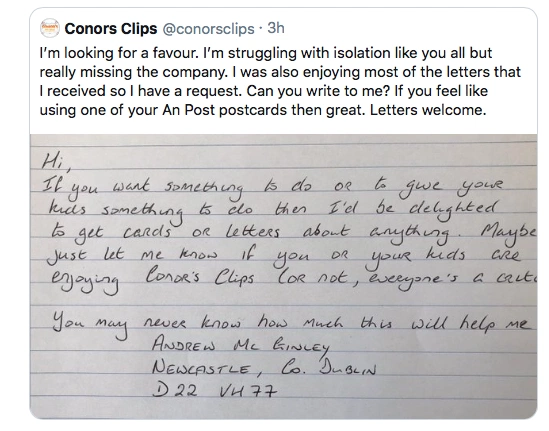 Conors Clips @conorsclips · 3h
I'm looking for a favour. I'm struggling with isolation like you all but
really missing the company. I was also enjoying most of the letters that
I received so I have a request. Can you write to me? If you feel like
using one of your An Post postcards then great. Letters welcome.
Hi,
If you want something to do or to give your
kids something to do then I'd be delighted
to get cards or letters about anything. Maybe
just let me know if you or your kids are
enjoying Conor's Clips (or not, everyone's a
You may never know how much this will help me
ANDREW MC GINLEY
NEWCASTLE, Co. DUBLIN
D22 VH77